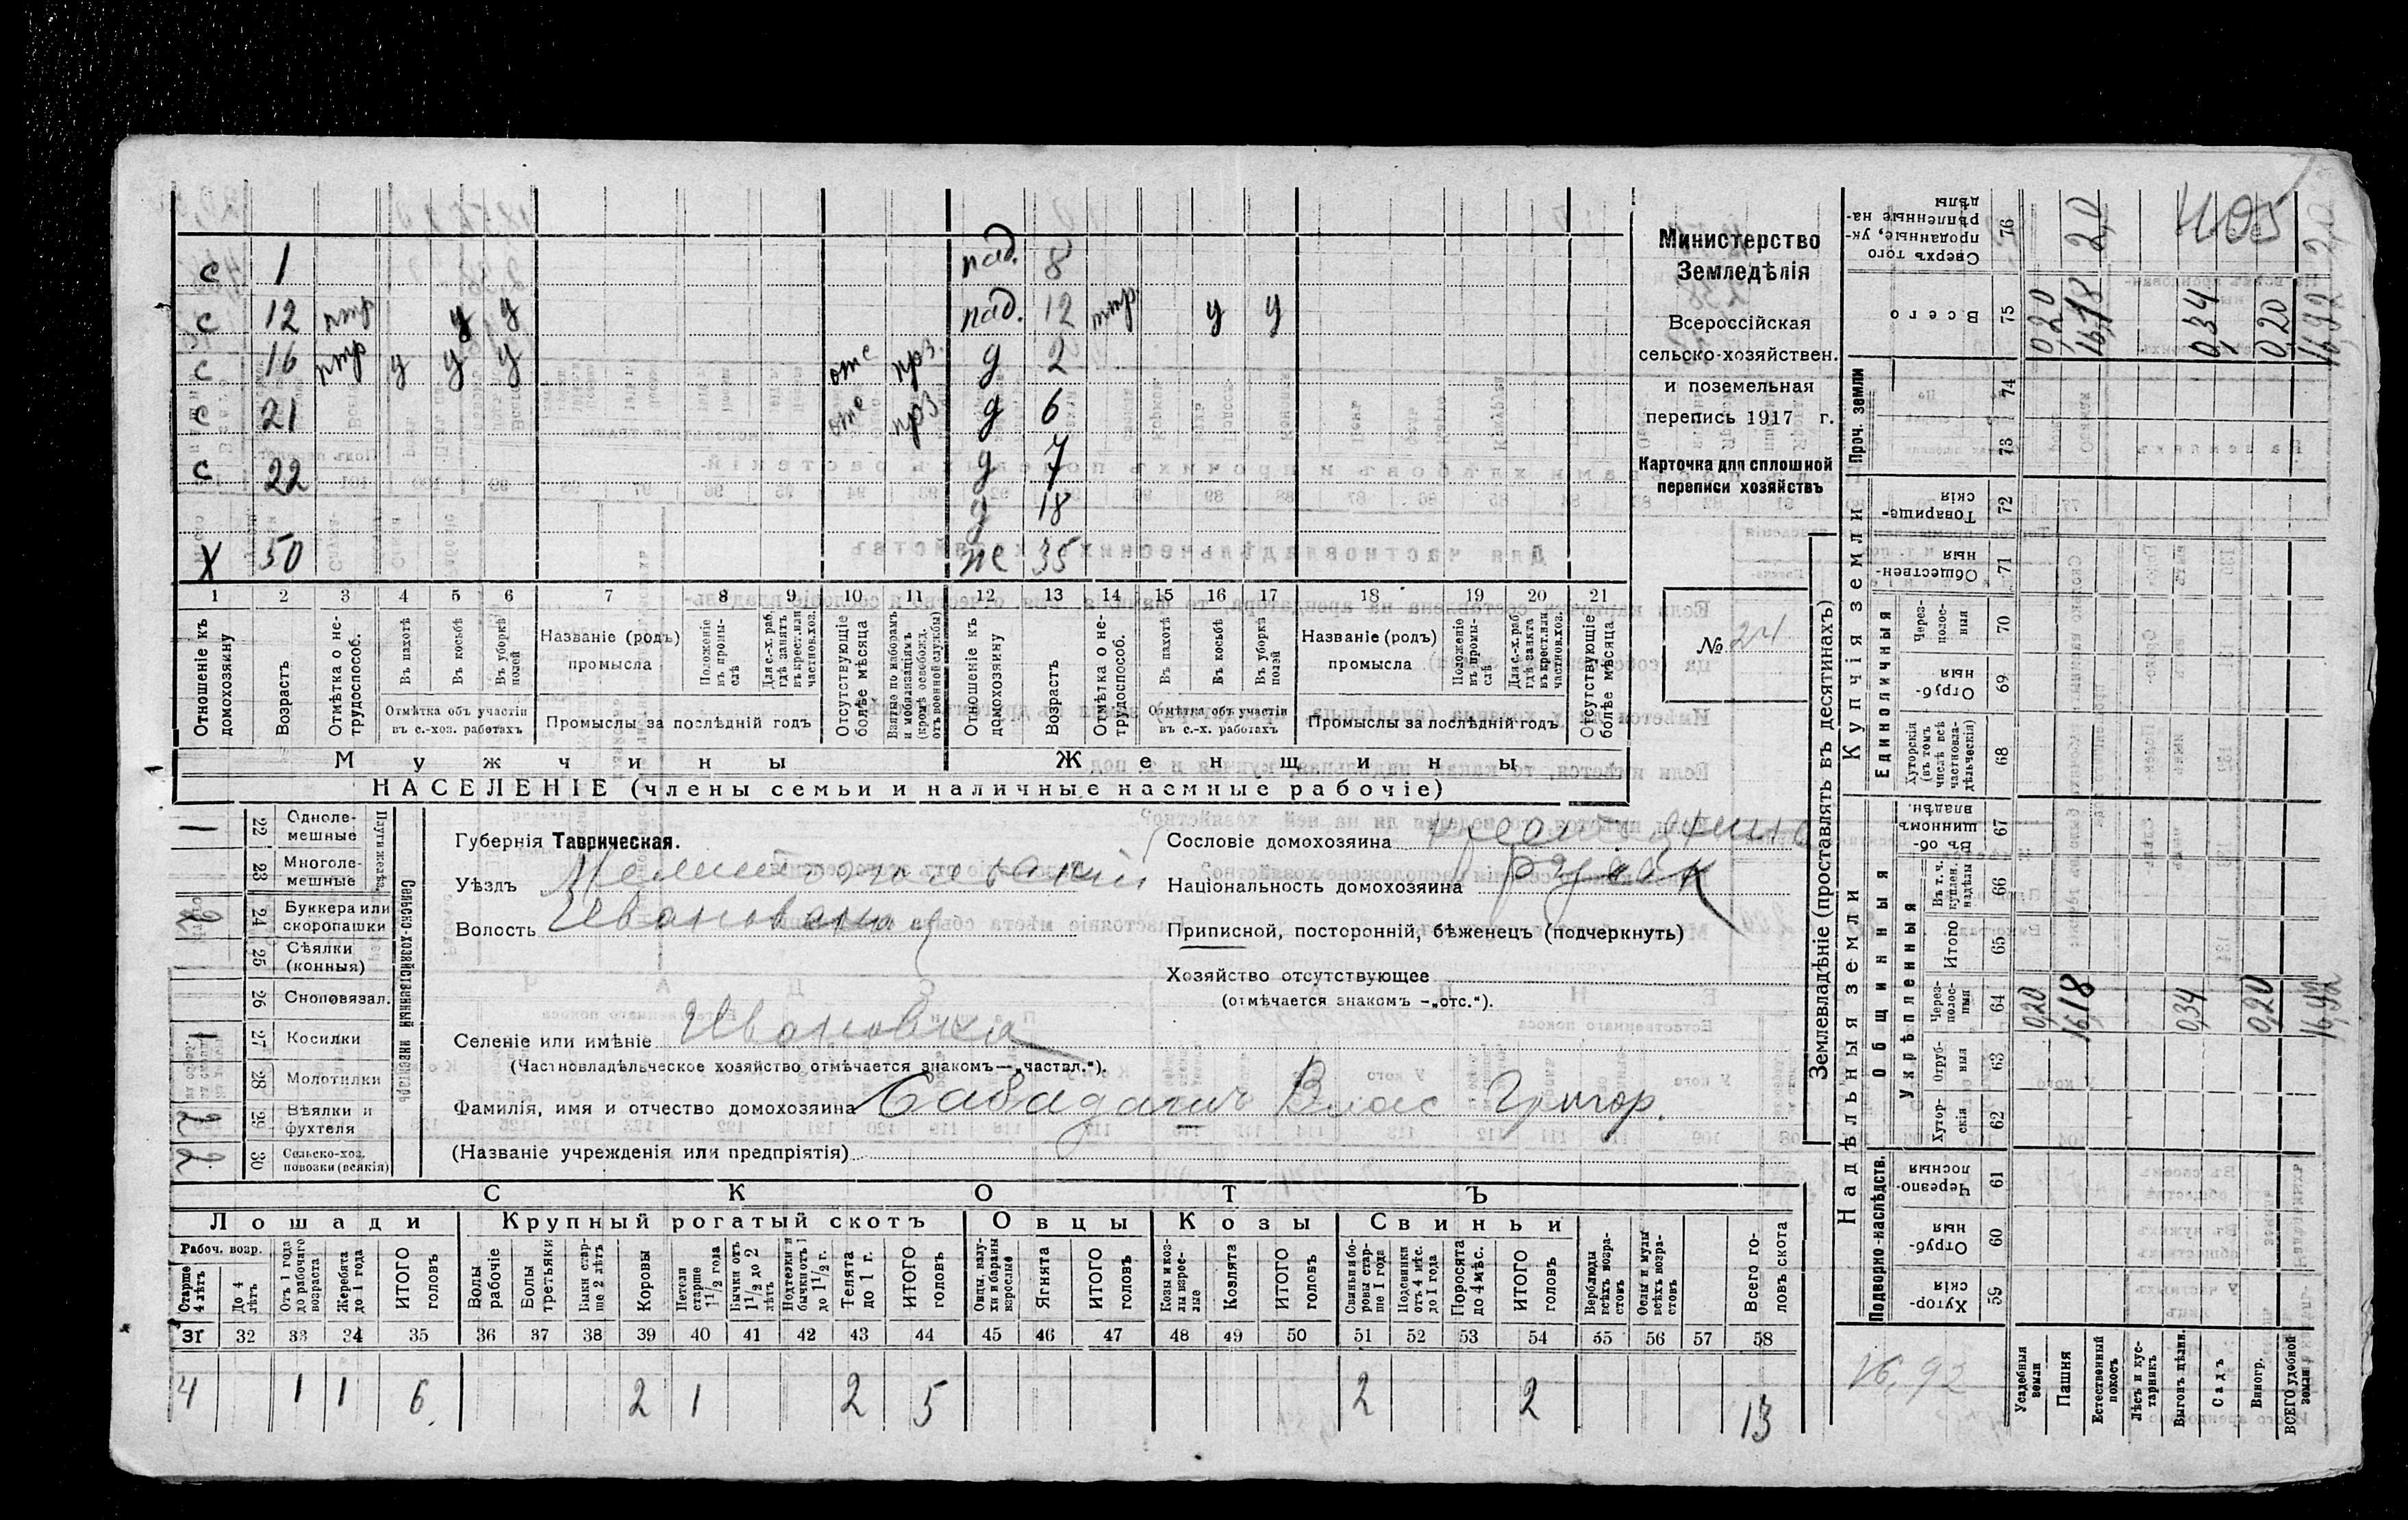 с 1 пад. 8
с 12 птр у у пад. 12 птр. у у
с 16 птр у у у отс прз. д 2
с 21 отс прз д 6
с 22 д 7
д 18
х 50 ж 35
1 2 3 4 5 6 7 8 9 10 11 12 13 14 15 16 17 18 19 20 21
Отношеніе къ домохозяину
Возрастъ
Отмѣтка о не-трудоспособ.
Въ пахотѣ
Въ косьбѣ
Въ уборкѣ полей
Отмѣтка объ участіи въ с.-хоз. работахъ
Названіе (родъ) промысла
Положеніе въ промы-слѣ
Для с.-х. раб. гдѣ занятъ въ крест. или частнов. хоз.
Промыслы за послѣдній годъ
Отсутствующіе болѣе мѣсяца
Взятые по наборамъ и мобилизаціямъ (кромѣ освобожд. отъ военной службы)
Отношеніе къ домохозяину
Возрастъ
Отмѣтка о не-трудоспособ.
Въ пахотѣ
Въ косьбѣ
Въ уборкѣ полей
Отмѣтка объ участіи въ с.-х. работахъ
Названіе (родъ) промысла
Положеніе въ промы-слѣ
Для с.-х. раб. гдѣ занята въ крест. или частнов. хоз.
Промыслы за послѣдній годъ
Отсутствующіе болѣе мѣсяца
Мужчины
Женщины
НАСЕЛЕНІЕ (члены семьи и наличные наемные рабочіе)
Министерство
Земледѣлія
Всероссійская
сельско-хозяйствен.
и поземельная
перепись 1917 г.
Карточка для сплошной
переписи хозяйствъ
№ 24
Сельско-хозяйственный инвентарь
Плуги желѣз.
1 22 Одноле-мешные
23 Многоле-мешные
2 24 Буккера или скоропашки
25 Сѣялки (конныя)
26 Сноповязал.
1 27 Косилки
28 Молотилки
2 29 Вѣялки и фухтеля
2 30 Сельско-хоз. повозки (всякія)
Губернія Таврическая.
Уѣздъ Мелитопольскій
Волость Ивановская
Селеніе или имѣніе Ивановка
(Частновладѣльческое хозяйство отмѣчается знакомъ—„частвл.“).
Фамилія, имя и отчество домохозяина Влас Григор.
(Названіе учрежденія или предпріятія)
Сословіе домохозяина
Національность домохозяина
Приписной, посторонній, бѣженецъ (подчеркнуть)
Хозяйство отсутствующее
(отмѣчается знакомъ —„отс.“).
СКОТЪ
Лошади
Крупный рогатый скотъ
Овцы
Козы
Свиньи
Рабоч. возр.
Старше 4 лѣтъ
До 4 лѣтъ
Отъ 1 года до рабочаго возраста
Жеребята до 1 года
ИТОГО головъ
Волы рабочіе
Волы третьяки
Быки стар-ше 2 лѣтъ
Коровы
Нетели старше 1 1/2 года
Бычки отъ 1 1/2 до 2 лѣтъ
Подтелки и бычки отъ 1 до 1 1/2 г.
Телята до 1 г.
ИТОГО головъ
Овцы, валу-хи и бараны взрослые
Ягнята
ИТОГО головъ
Козы и коз-лы взрос-лые
Козлята
ИТОГО головъ
Свиньи и бо-ровы стар-ше 1 года
Подсвинки отъ 4 мѣс. до 1 года
Поросята до 4 мѣс.
ИТОГО головъ
Верблюды всѣхъ возра-стовъ
Ослы и мулы всѣхъ возра-стовъ
Всего го-ловъ скота
31 32 33 34 35 36 37 38 39 40 41 42 43 44 45 46 47 48 49 50 51 52 53 54 55 56 57 58
4 1 1 6 2 1 2 5 2 2 13
Землевладѣніе (проставлять въ десятинахъ)
Купчія земли
Надѣльныя земли
Проч. земли
Единоличныя
Общинныя
Укрѣпленныя
Подворно-наслѣдств.
Сверхъ того проданные, ук-рѣпленные на-дѣлы 76 2,0 405 2,0
Всего 75 0,20 16,18 0,34 0,20 16,92
74
73
Товарище-скія 72
Обществен-ныя 71
Через-полос-ныя 70
Отруб-ныя 69
Хуторскія (въ томъ числѣ всѣ частновла-дѣльческія) 68
Въ об-щинномъ владѣн. 67
Въ т. ч. куплен. надѣлы 66
Итого 65
Через-полос-ныя 64 0,20 16,18 0,34 0,20 16,92
Отруб-ныя 63
Хутор-скія 62
Черезпо-лосныя 61
Отруб-ныя 60
Хутор-скія 59
16,92
Усадебныя земли
Пашня
Естественный покосъ
Лѣсъ и кус-тарникъ
Выгонъ цѣлин.
Садъ
Виногр.
ВСЕГО удобной земли